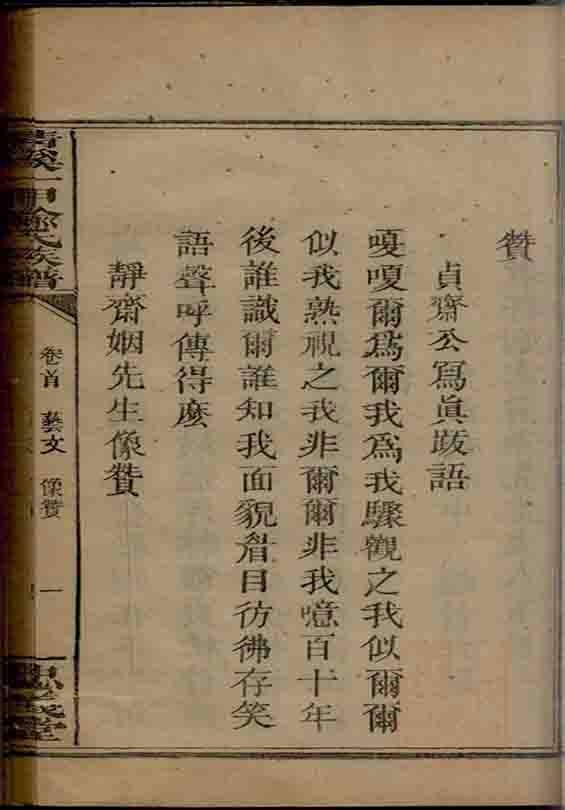 贊
貞齋公寫眞跋語
嗄嗄爾爲爾我爲我驟觀之我似爾爾
似我熟視之我非爾爾非我噫百十年
後誰識爾誰知我面貌眉目彷彿存笑
語聲呼傳得麽
靜齋姻先生像贊
氏族譜
卷首 藝文 像贊 一
堂